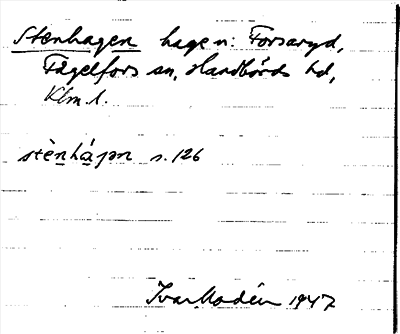 Stenhagen hage n: Forsaryd,
Fågelfors sn, Handbörds hd,
Klm l.
stèn̲há̲ɡən s. 126
Ivar Modéer 1947